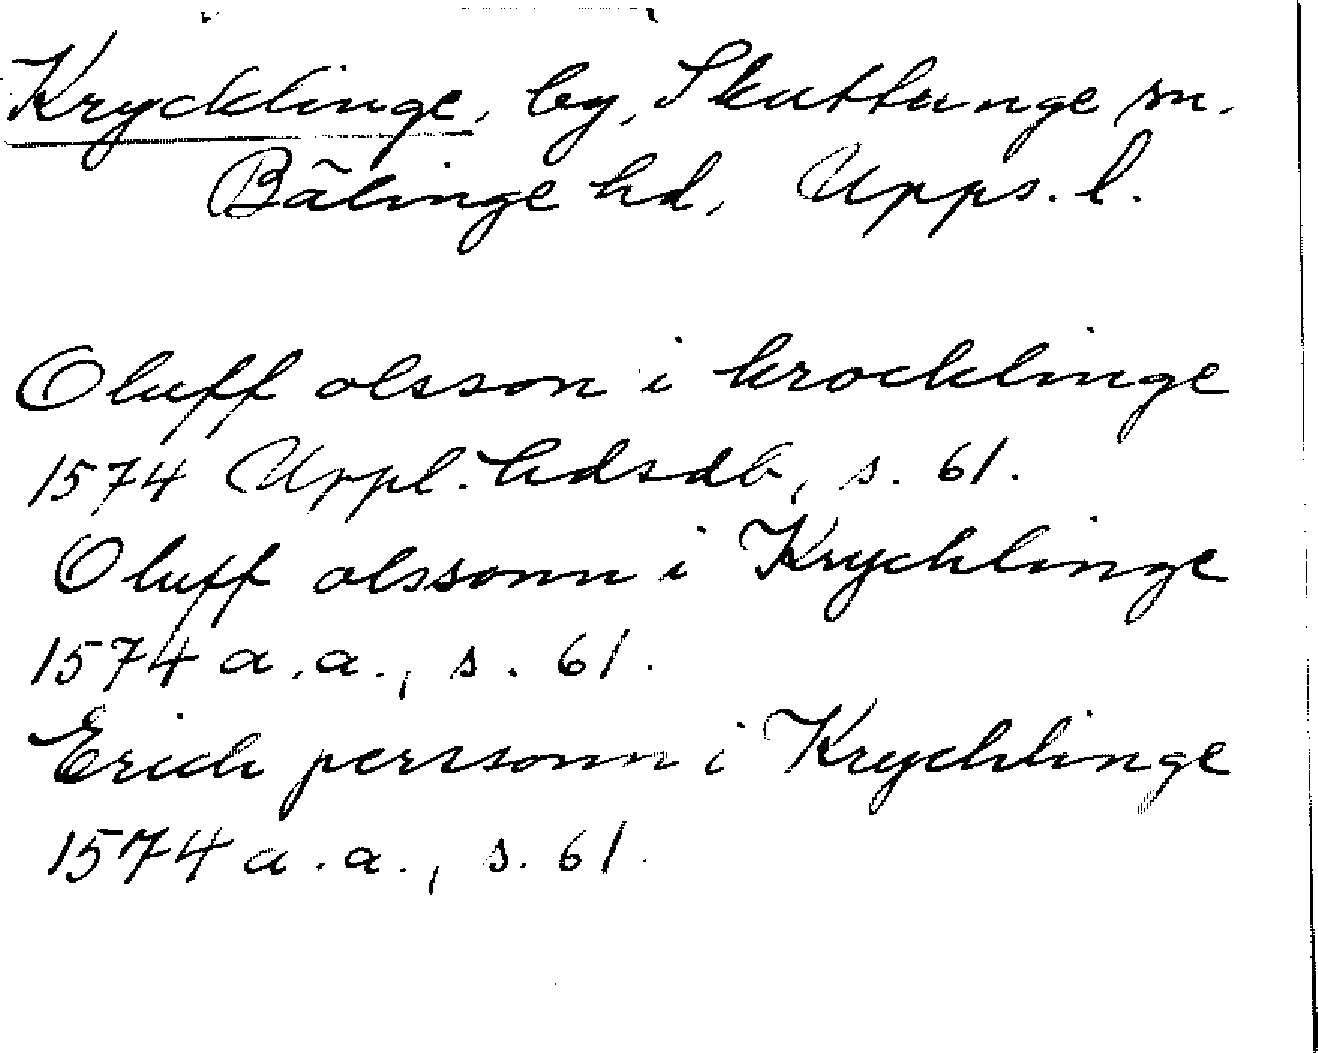 Krycklinge, by, Skuttunge sn.
Bälinge hd, Upps. l.
Oluff olsson i krocklinge
1574 Uppl. hdsdb, s. 61.
Oluff olssonn i Krychlinge
1574 a.a., s. 61.
Erich perssonn i Krychlinge
1574 a.a., s. 61.